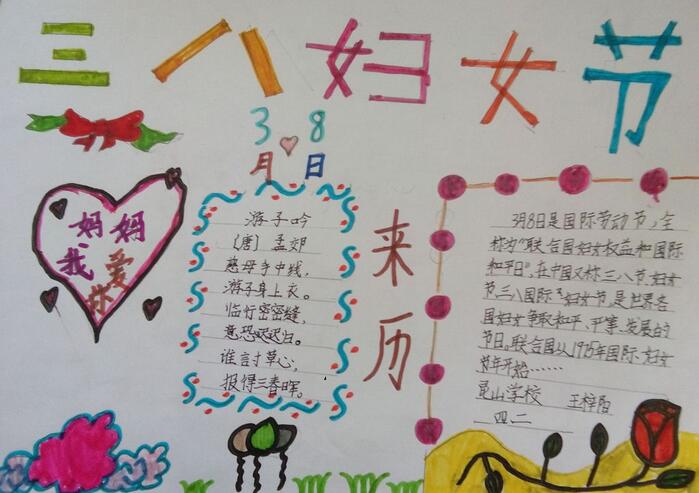 三八妇女节
3月8日
妈妈
我爱你
游子吟
〔唐〕孟郊
慈母手中线,
游子身上衣。
临行密密缝,
意恐迟迟归。
谁言寸草心,
报得三春晖。
来历
3月8日是国际劳动节,全
称为"联合国妇女权益和国际
和平日",在中国又称三八节、妇女
节、三八国际妇女节,是世界各
国妇女争取和平、平等、发展的
节日。联合国从1975年国际妇女
节年开始……
昆山学校 王梓阳
四二